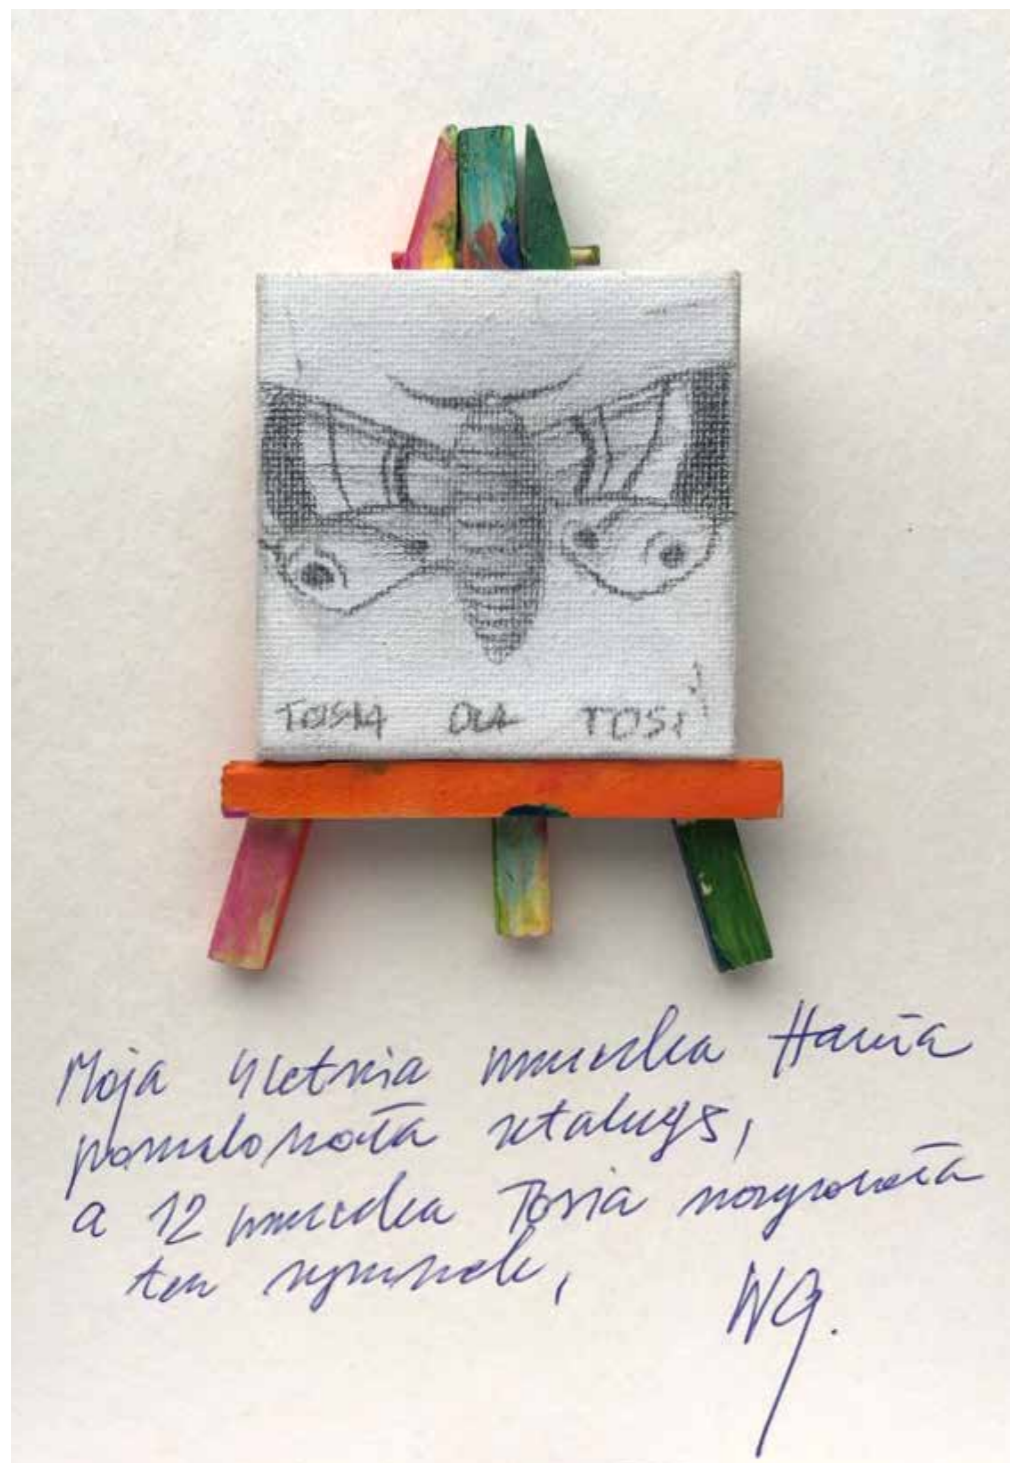 TOSIA DLA TOSI
Moja 4letnia wnuczka Hania
pomalowała sztalugę,
a 12 wnuczka Tosia narysowała
ten rysunek,
WG.